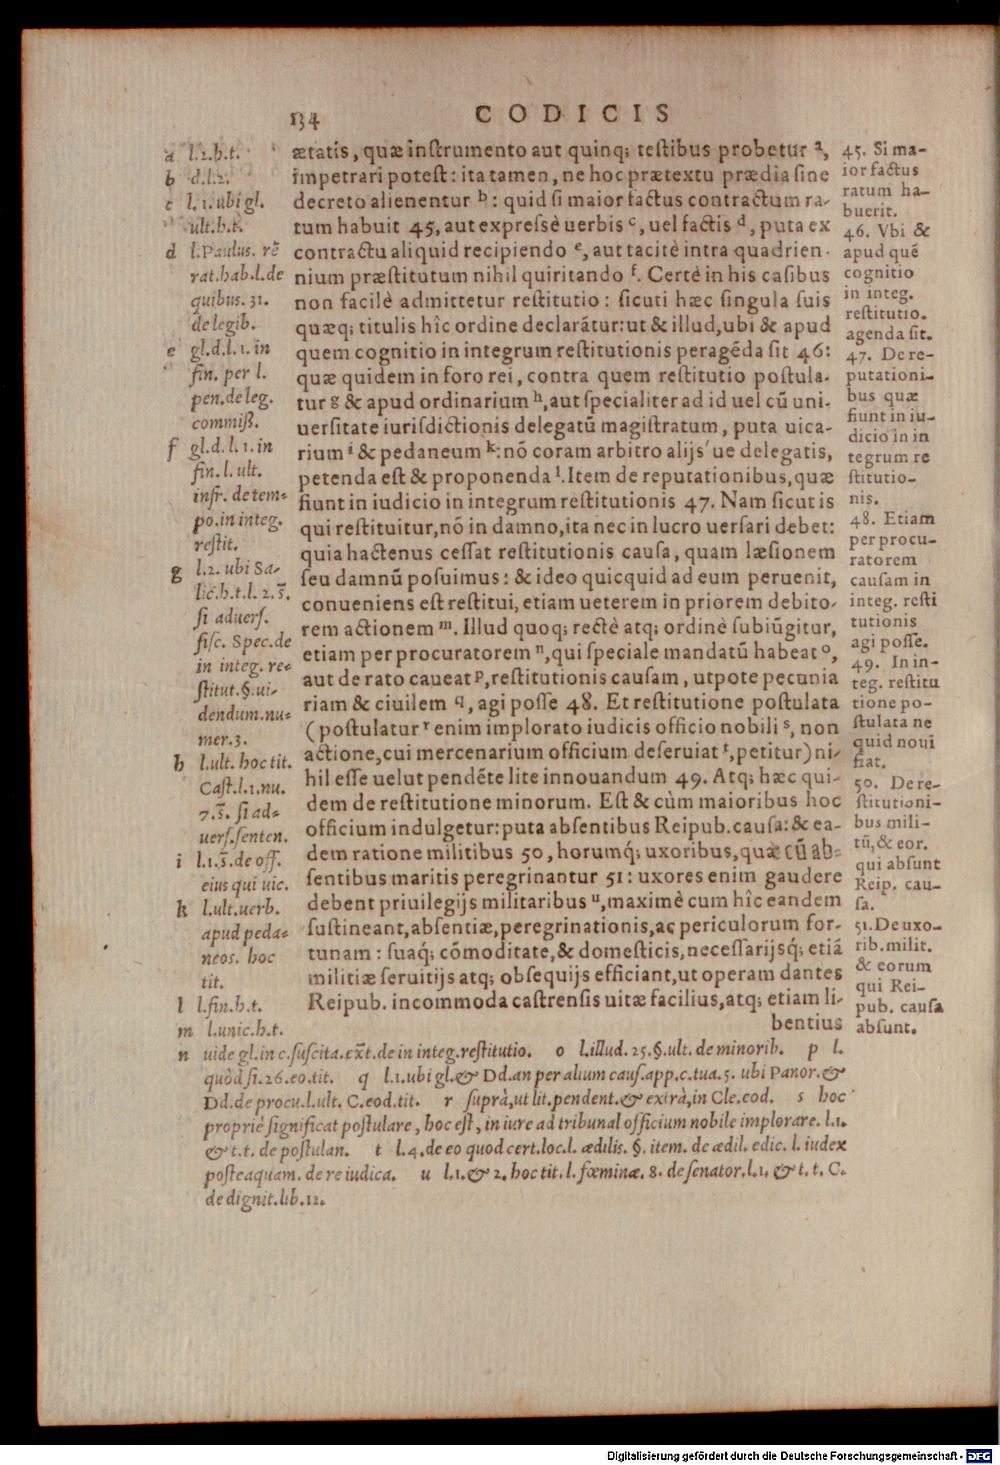 134 CODICIS
ætatis, quæ inſtrumento aut quinq; teſtibus probetur ᵃ,
impetrari poteſt: ita tamen, ne hoc prætextu prædia ſine
decreto alienentur ᵇ: quid ſi maior factus contractum ra-
tum habuit 45, aut expreſsè uerbis ᶜ, uel factis ᵈ, puta ex
contractu aliquid recipiendo ᵉ, aut tacitè intra quadrien-
nium præſtitutum nihil quiritando ᶠ. Certè in his caſibus
non facilè admittetur reſtitutio: ſicuti hæc ſingula ſuis
quæq; titulis hîc ordine declarātur: ut & illud, ubi & apud
quem cognitio in integrum reſtitutionis peragēda ſit 46:
quæ quidem in foro rei, contra quem reſtitutio poſtula-
tur g & apud ordinarium ʰ, aut ſpecialiter ad id uel cū uni-
uerſitate iurisdictionis delegatū magiſtratum, puta uica-
rium ⁱ & pedaneum ᵏ: nō coram arbitro alijs'ue delegatis,
petenda eſt & proponenda ˡ. Item de reputationibus, quæ
fiunt in iudicio in integrum reſtitutionis 47. Nam ſicut is
qui reſtituitur, nō in damno, ita nec in lucro uerſari debet:
quia hactenus ceſſat reſtitutionis cauſa, quam læſionem
ſeu damnū poſuimus: & ideo quicquid ad eum peruenit,
conueniens eſt reſtitui, etiam ueterem in priorem debito-
rem actionem ᵐ. Illud quoq; rectè atq; ordinè ſubiūgitur,
etiam per procuratorem ⁿ, qui ſpeciale mandatū habeat ᵒ,
aut de rato caueat ᵖ, reſtitutionis cauſam, utpote pecunia
riam & ciuilem q, agi poſſe 48. Et reſtitutione poſtulata
(poſtulatur ʳ enim implorato iudicis officio nobili ˢ, non
actione, cui mercenarium officium deſeruiat ᵗ, petitur) ni-
hil eſſe uelut pendēte lite innouandum 49. Atq; hæc qui-
dem de reſtitutione minorum. Eſt & cùm maioribus hoc
officium indulgetur: puta abſentibus Reipub. cauſa: & ea-
dem ratione militibus 50, horumq́; uxoribus, quæ cū ab-
ſentibus maritis peregrinantur 51: uxores enim gaudere
debent priuilegijs militaribus ᵘ, maximè cum hîc eandem
ſuſtineant, abſentiæ, peregrinationis, ac periculorum for-
tunam: ſuaq́; cōmoditate, & domeſticis, neceſſarijsq́; etiā
militiæ ſeruitijs atq; obſequijs efficiant, ut operam dantes
Reipub. incommoda caſtrenſis uitæ facilius, atq; etiam li-
bentius
a l.2.h.t.
b d.l.2.
c l.1.ubi gl.
ult.h.t.
d l.Paulus. rē
rat.hab.l.de
quibus. 31.
de legib.
e gl.d.l.1. in
fin. per l.
pen.de leg.
commiß.
f gl.d.l.1. in
fin. l. ult.
infr. de tem-
po.in integ.
reſtit.
g l.2. ubi Sa-
lic.h.t.l. 2.s̄.
ſi aduerſ.
fiſc. Spec.de
in integ. re-
ſtitut.§.ui-
dendum.nu-
mer.3.
h l.ult. hoc tit.
Caſt.l.1.nu.
7.s̄. ſi ad-
uerſ.ſenten.
i l.1.s̄.de off.
eius qui uic.
k l.ult.uerb.
apud peda-
neos. hoc
tit.
l l.fin.h.t.
m l.unic.h.t.
n uide gl.in c.ſuſcita.ext̄.de in integ.reſtitutio. o l.illud.25.§.ult. de minorib. p l.
quòd ſi.26.eo.tit. q l.1.ubi gl.& Dd.an per alium cauſ.app.c.tua.5. ubi Panor.&
Dd.de procu.l.ult. C.eod.tit. r ſuprà,ut lit.pendent.& extrà,in Cle.eod. s hoc
propriè ſignificat poſtulare, hoc eſt, in iure ad tribunal officium nobile implorare. l.1.
& t.t. de poſtulan. t l.4.de eo quod cert.loc.l. ædilis. §. item. de ædil. edic. l. iudex
poſteaquam. de re iudica. u l.1.& 2. hoc tit. l. fœminæ. 8. de ſenator.l.1. & t. t. C.
de dignit.lib.12.
45. Si ma-
ior factus
ratum ha-
buerit.
46. Vbi &
apud quē
cognitio
in integ.
reſtitutio.
agenda ſit.
47. De re-
putationi-
bus quæ
fiunt in iu-
dicio in in
tegrum re
ſtitutio-
nis.
48. Etiam
per procu-
ratorem
cauſam in
integ. reſti
tutionis
agi poſſe.
49. In in-
teg. reſtitu
tione po-
ſtulata ne
quid noui
fiat.
50. De re-
ſtitutioni-
bus mili-
tū, & eor.
qui abſunt
Reip. cau-
ſa.
51. De uxo-
rib. milit.
& eorum
qui Rei-
pub. cauſa
abſunt.
Digitalisierung gefördert durch die Deutsche Forschungsgemeinschaft - DFG